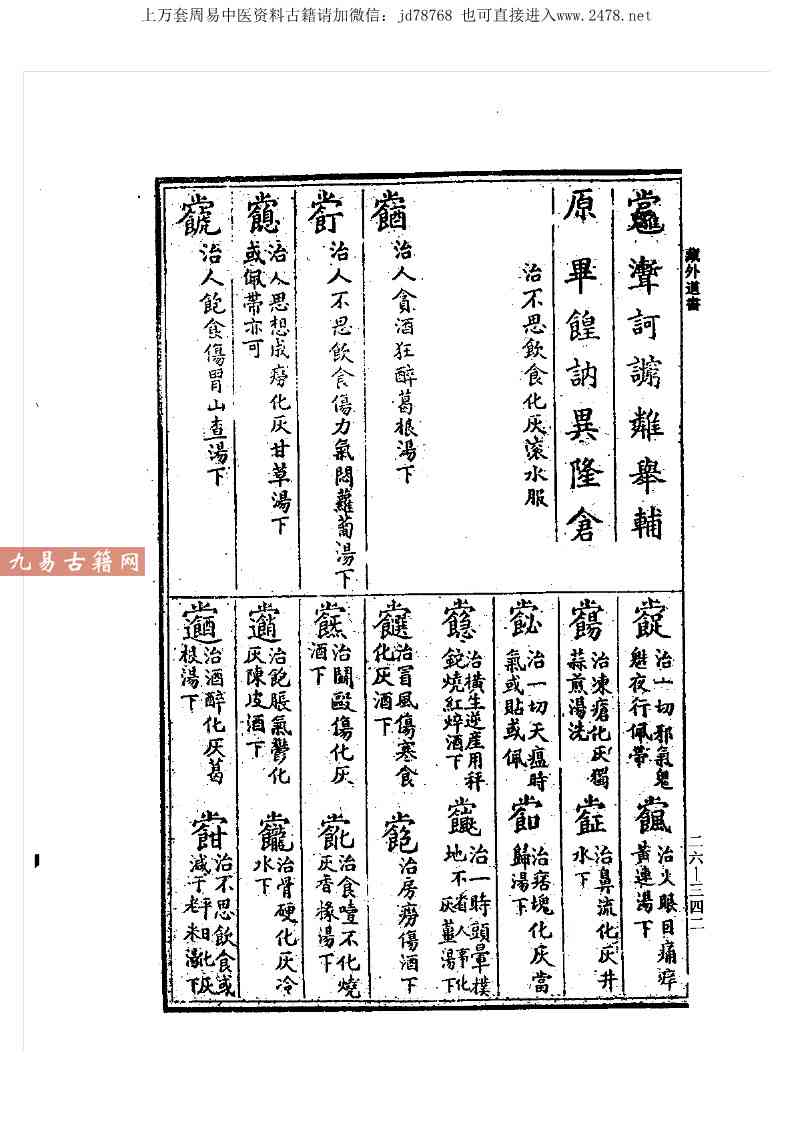 上万套周易中医资料古籍请加微信：jd78768 也可直接进入www.2478.net
藏外道書
訶
舉輔
原畢餭訥異隆倉
治不思飲食化灰滚水服
治人貪酒狂醉葛根湯下
治人不思飲食傷力氣悶蘿蔔湯下
治人思想成癆化灰甘草湯下
或佩帶亦可
治人飽食傷胃山查湯下
治一切邪氣鬼
魅夜行佩帶
治火眼目痛痒
黃連湯下
治凍瘡化灰獨
蒜煎湯洗
治鼻流化灰井
水下
治一切天瘟時
氣或貼或佩
治痞塊化灰當
歸湯下
治橫生逆產用秤
錠燒紅焠酒下
治一時頭暈撲
地不省人事化
灰薑湯下
治冒風傷寒食
化灰酒下
治房癆傷酒下
治鬪毆傷化灰
酒下
治食噎不化燒
灰香橼湯下
治飽脹氣鬱化
灰陳皮酒下
治骨硬化灰冷
水下
治酒醉化灰葛
根湯下
治不思飲食或
減于平日化灰
老米湯下
二六—三四二
九易古籍网